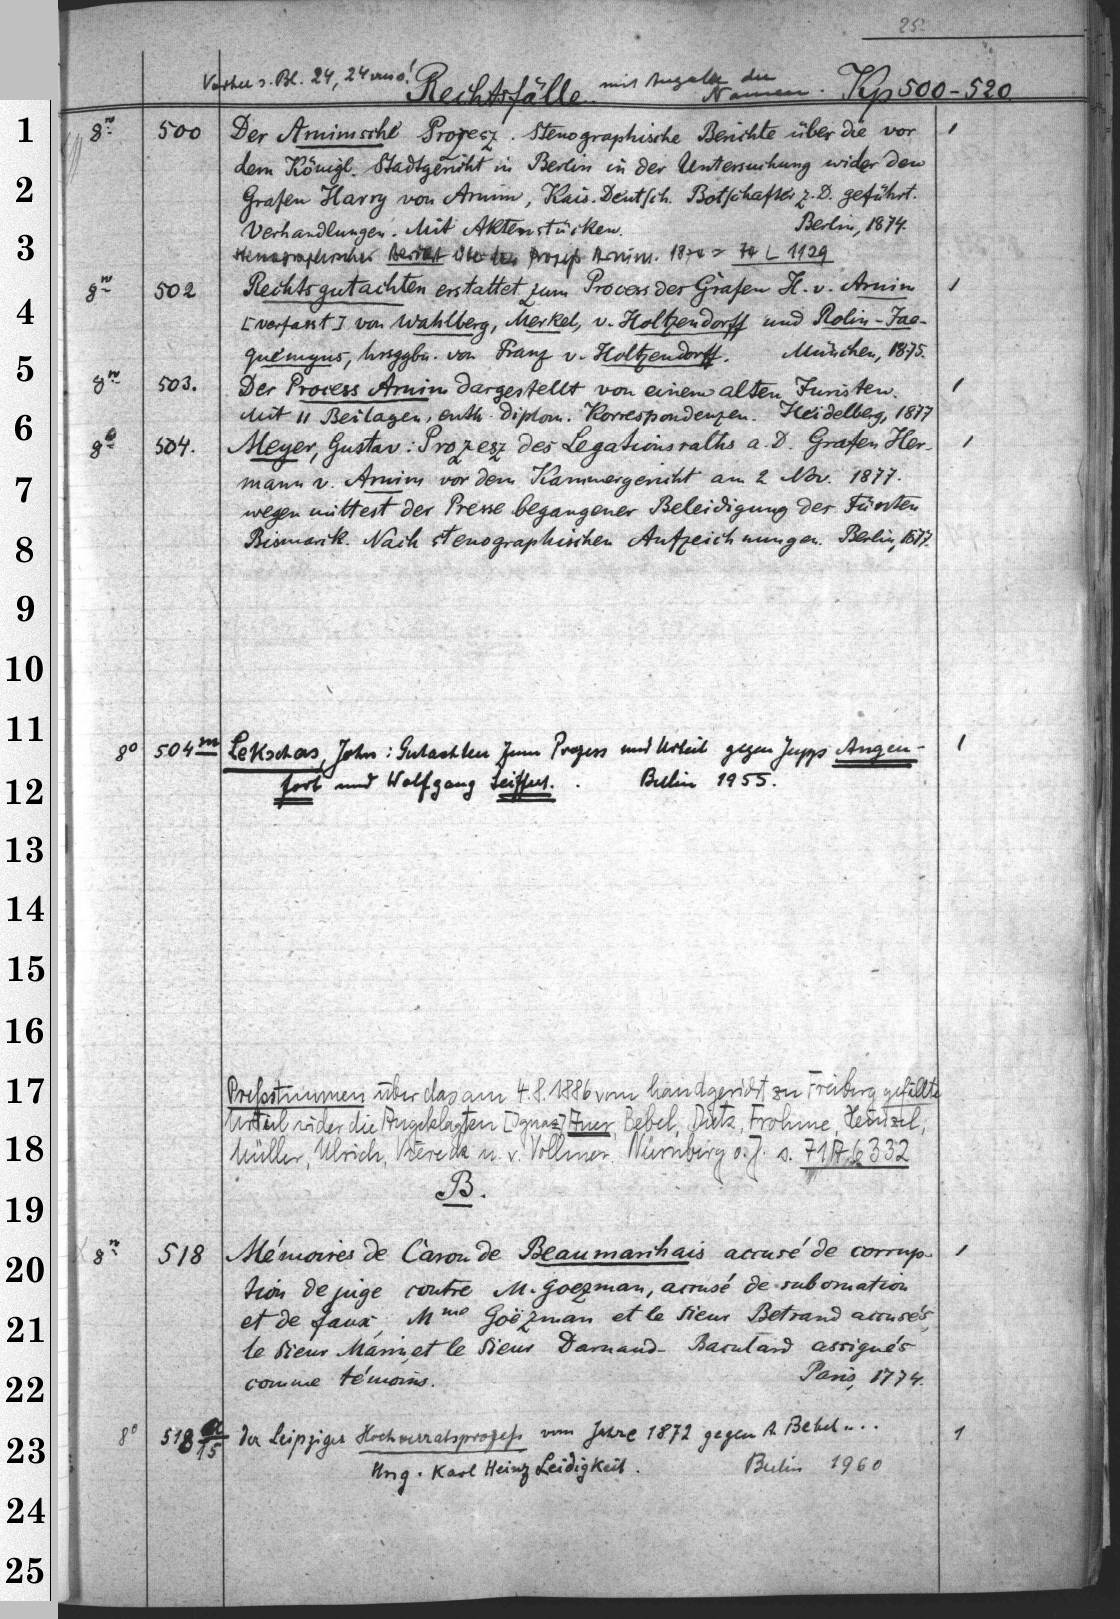 25.
Vorher s. Bl. 24, 24 verso! Rechtsfälle mit Angabe der Namen. Kp 500-520
1
8° 500 Der Arnimsche Prozesz. Stenographische Berichte über die vor 1
dem Königl. Stadtgericht in Berlin in der Untersuchung wider den
2
Grafen Harry von Arnim, Kais. Deutsch. Botschafter z. D. geführt.
Verhandlungen. Mit Aktenstücken. Berlin, 1874.
3
Stenographischer Bericht über den Prozeß Arnim. 1874 = 74 L 1129
8° 502 Rechtsgutachten erstattet zum Process des Grafen H. v. Arnim 1
4
[verfasst] von Wahlberg, Merkel, v. Holtzendorff und Rolin-Jae-
quemyns, hrsggbn. von Franz v. Holtzendorff. München, 1875.
5
8° 503. Der Process Arnim dargestellt von einem alten Juristen. 1
Mit 11 Beilagen, enth. diplom. Korrespondenzen. Heidelberg, 1877
6
8° 504. Meyer, Gustav: Prozesz des Legationsraths a. D. Grafen Her- 1
mann v. Arnim vor dem Kammergericht am 2 Nov. 1877.
7
wegen mittest der Presse begangener Beleidigung des Fürsten
Bismarck. Nach stenographischen Aufzeichnungen. Berlin, 1877.
8
9
10
11
8° 504 m Lekschas, John: Gutachten zum Prozess und Urteil gegen Jupp Angen- 1
fort und Wolfgang Seiffert. Berlin 1955.
12
13
14
15
16
17
Preßstimmen über das am 4.8.1886 vom Landgericht zu Freiberg gefällte
Urteil wider die Angeklagten [Ignaz] Auer, Bebel, Dietz, Frohme, Heinzel,
18
Müller, Ulrich, Viereck u. v. Vollmar. Nürnberg o. J. s. 71 A 6332
B.
19
8° 518 Mémoires de Caron de Beaumarchais accusé de corrup- 1
20
tion de juge contre M. Goezman, accusé de subornation
et de faux, Mme Goëzman et le sieur Betrand accusés,
21
le sieur Marin, et le sieur Darnaud-Baculard assignés
comme témoins. Paris, 1774.
22
8° 518 a/15 der Leipziger Hochverratsprozeß vom Jahre 1872 gegen A. Bebel u... 1
23
Hrsg. Karl Heinz Leidigkeit. Berlin 1960
24
25